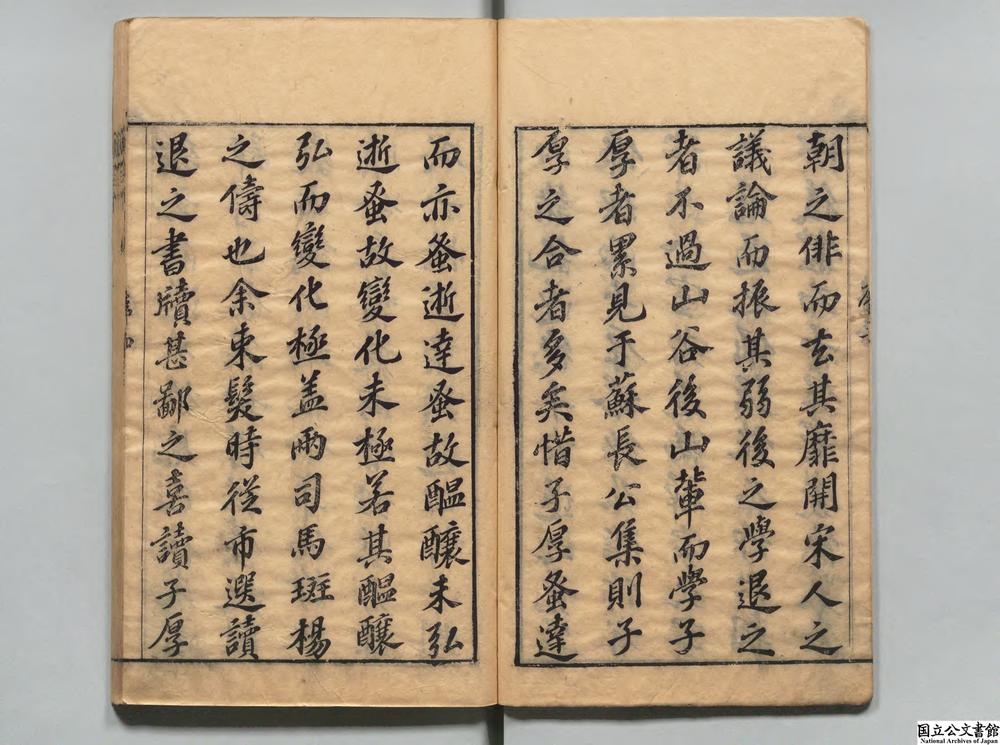 朝之俳而去其靡開宋人之
議論而振其弱後之學退之
者不過山谷後山輩而學子
厚者累見于蘇長公集則子
厚之合者多矣惜子厚蚤達
而亦蚤逝達蚤故醖釀未弘
逝蚤故變化未極若其醖釀
弘而變化極盖兩司馬班楊
之儔也余束髮時從市選讀
退之書牘甚鄙之喜讀子厚
国立公文書館
National Archives of Japan